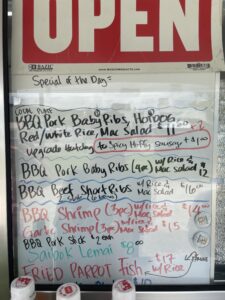 OPEN
Special of the Day:
LOCAL PLATE
BBQ Pork Baby Ribs, Hotdog
Red/White Rice, Mac Salad $11.00
upgrade Hotdog to Spicy Huffy Sausage + $1.00
BBQ Pork Baby Ribs (4oz) w/ Rice & Mac Salad $12
BBQ Beef Short Ribs w/ Rice & Mac Salad $16.00
BBQ Shrimp (3pc) w/ Rice Mac Salad $14
Garlic Shrimp (3pc) w/ Rice Mac Salad $15
BBQ Pork Stick $2 each
$8
FRIED PARROT Fish $17 w/ Rice